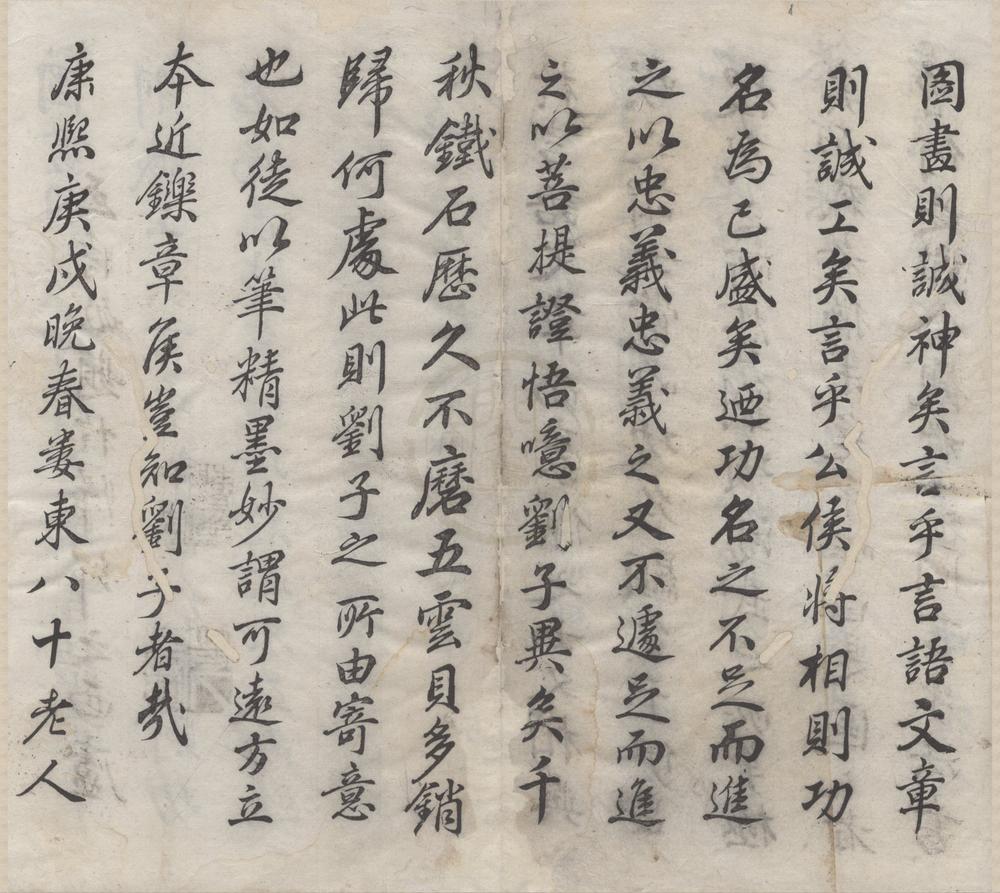 圖畫則誠神矣言乎言語文章
則誠工矣言乎公侯将相則功
名為已盛矣廼功名之不足而進
之以忠義忠義之又不遽足而進
之以菩提證悟噫劉子異矣千
秋鐵石歷久不磨五雲貝多銷
歸何處此則劉子之所由寄意
也如徒以筆精墨妙謂可遠方立
本近鑠章侯豈知劉子者哉
康熙庚戍晩春婁東八十老人